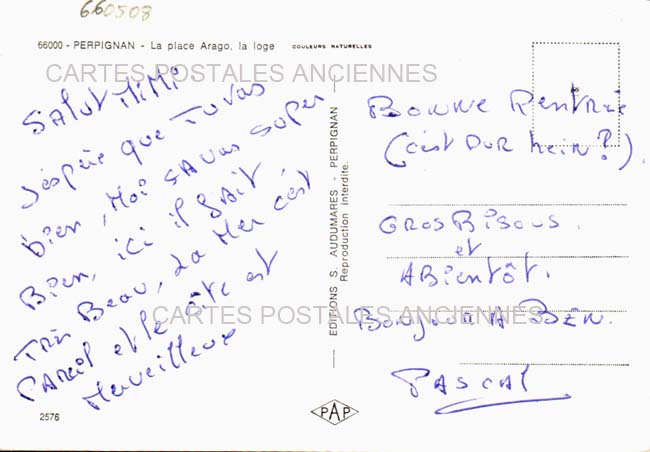 660508
66000 - PERPIGNAN - La place Arago, la loge COULEURS NATURELLES
CARTES POSTALES ANCIENNES
SALUT MiMi
J'éspère que Tu vas
bien, Moi SA vas super
Bien, ici il fait
Très Beau, La Mer c'est
PAreil et le côte est
Merveilleux
2576
EDITIONS S. AUDUMARES - PERPIGNAN
Reproduction interdite.
PAP
BONNE RENTRée
(c'est DUR hein?).
GROS Bisous.
et
ABientôt.
CARTES POSTALES ANCIENNES
Bonjour A
PASCAL